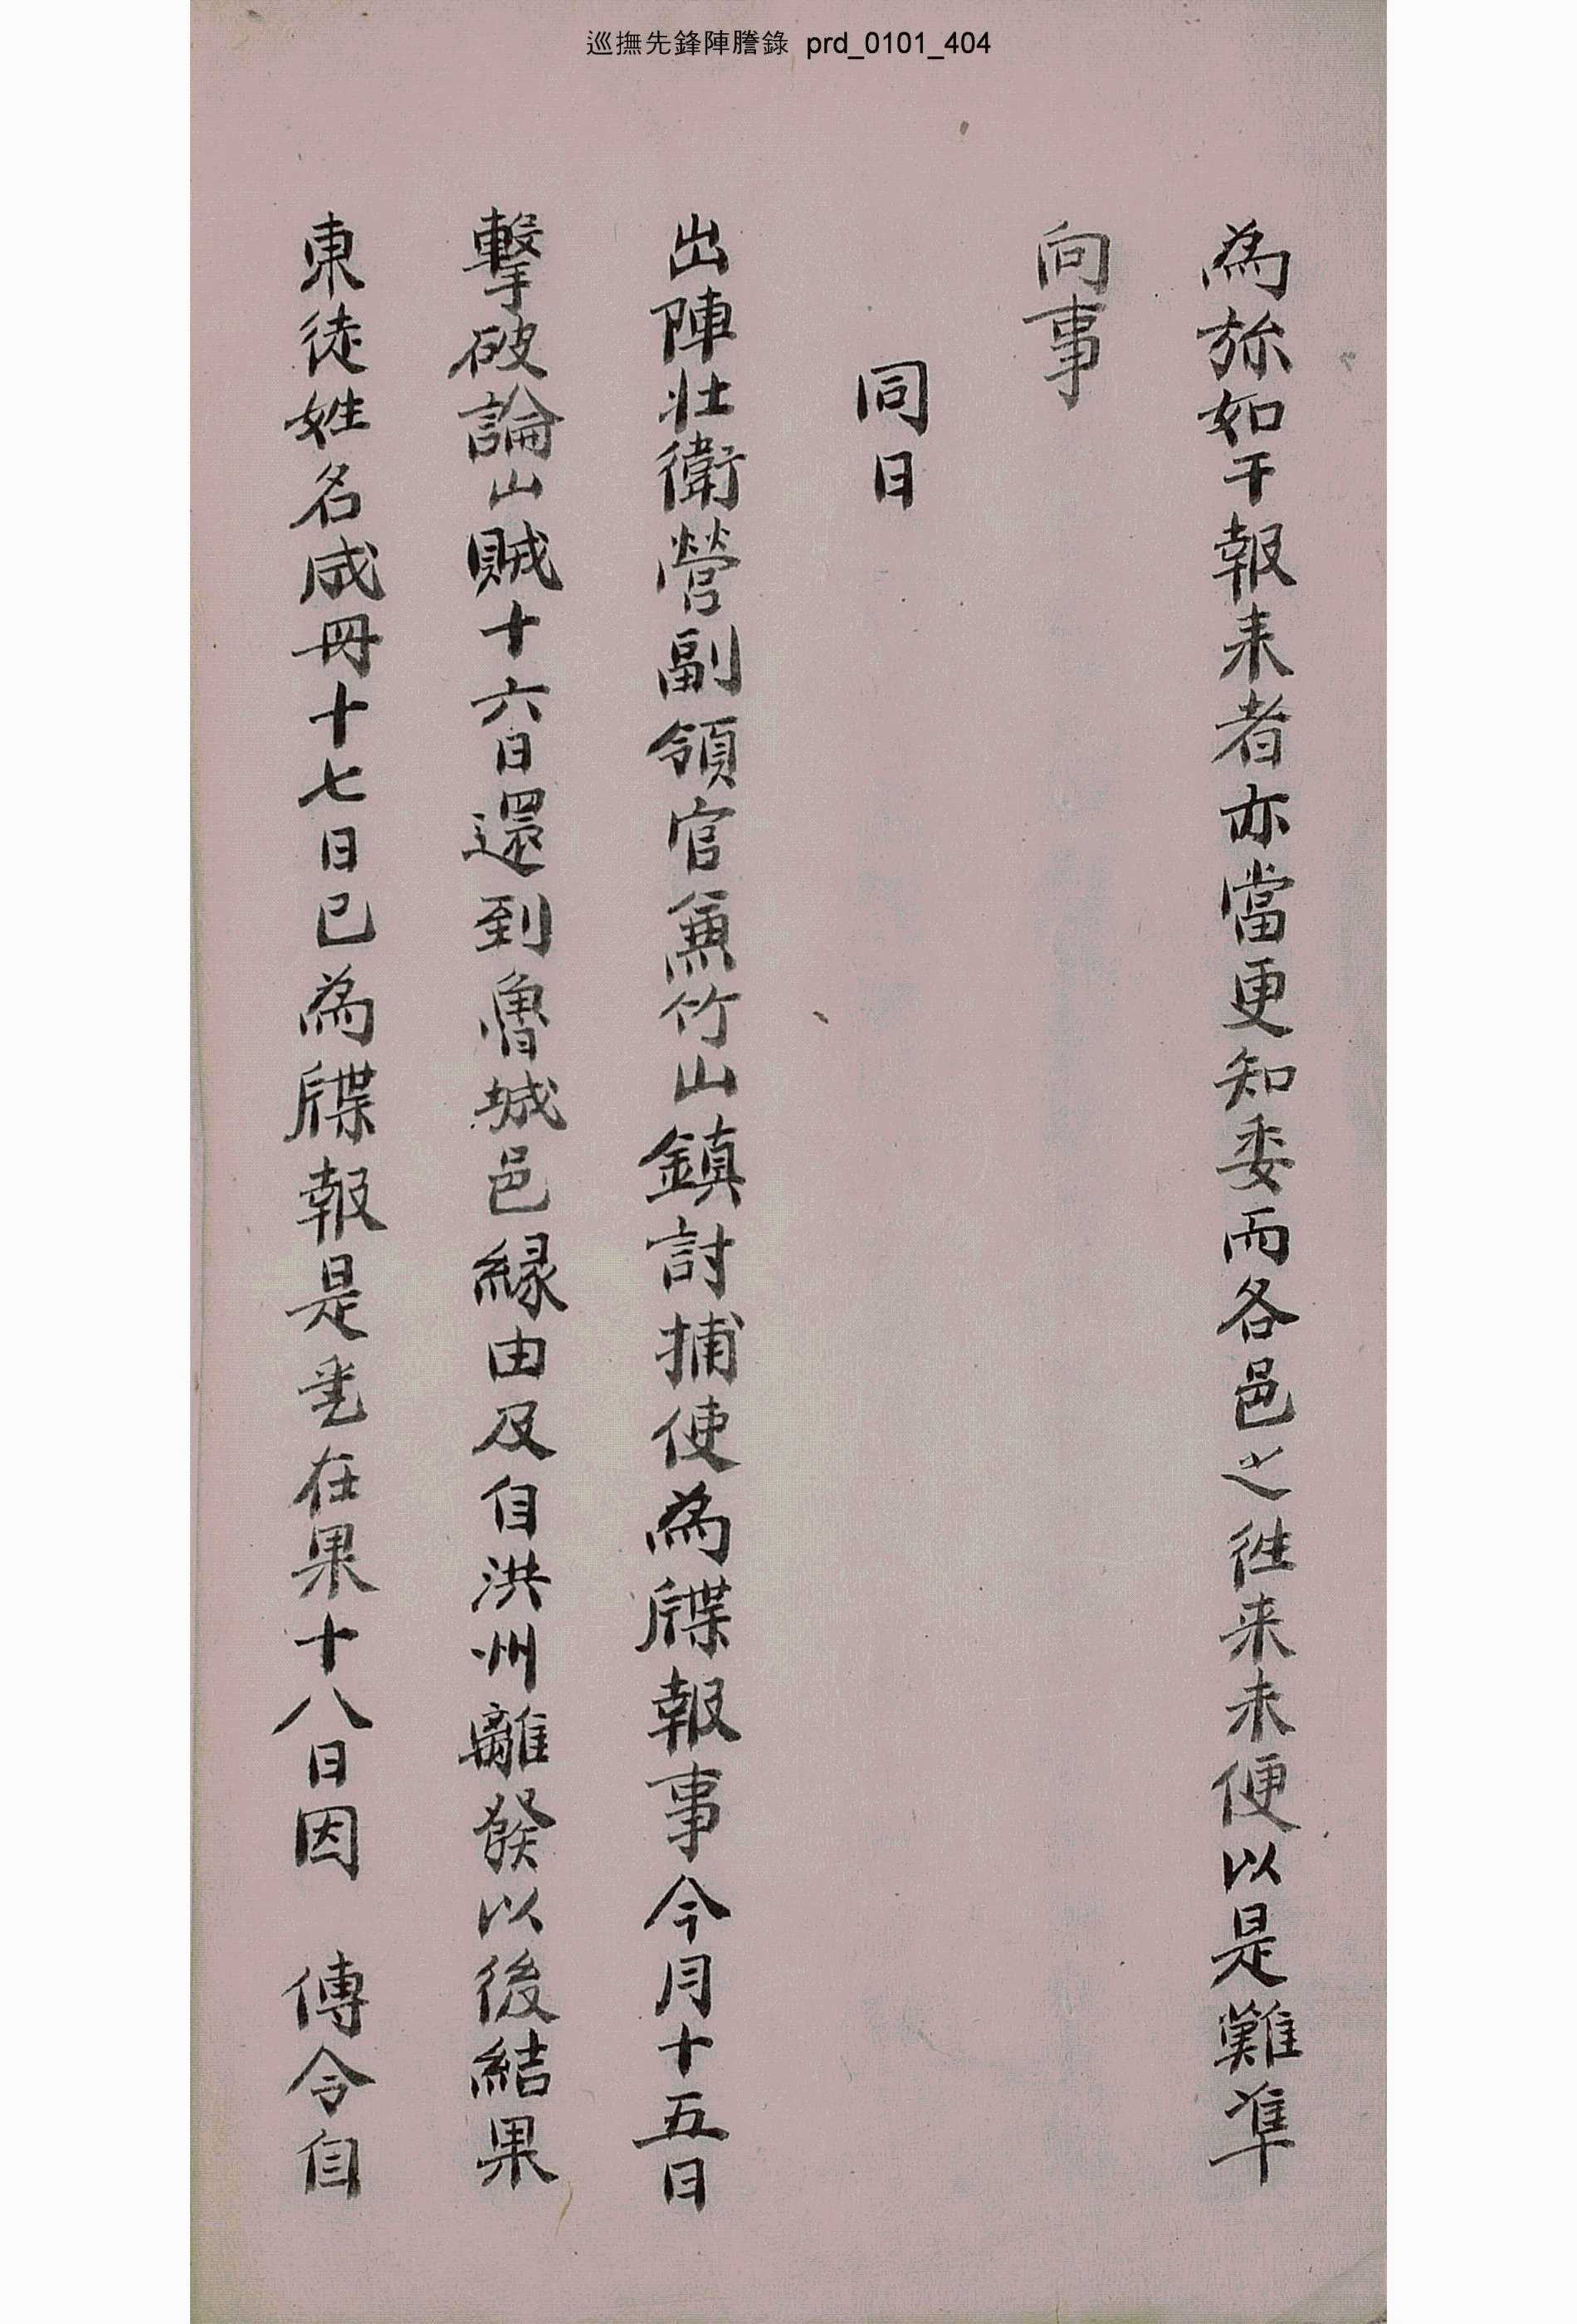 巡撫先鋒陣謄錄 prd_0101_404
為旀如干報来者亦當更知委而各邑之徃来未便以是難準
向事
同日
出陣壯衛營副領官兼竹山鎮討捕使為牒報事今月十五日
擊破論山賊十六日還到魯城邑緣由及自洪州離發以後結果
東徒姓名成冊十七日已為牒報是乎在果十八日因 傳令自